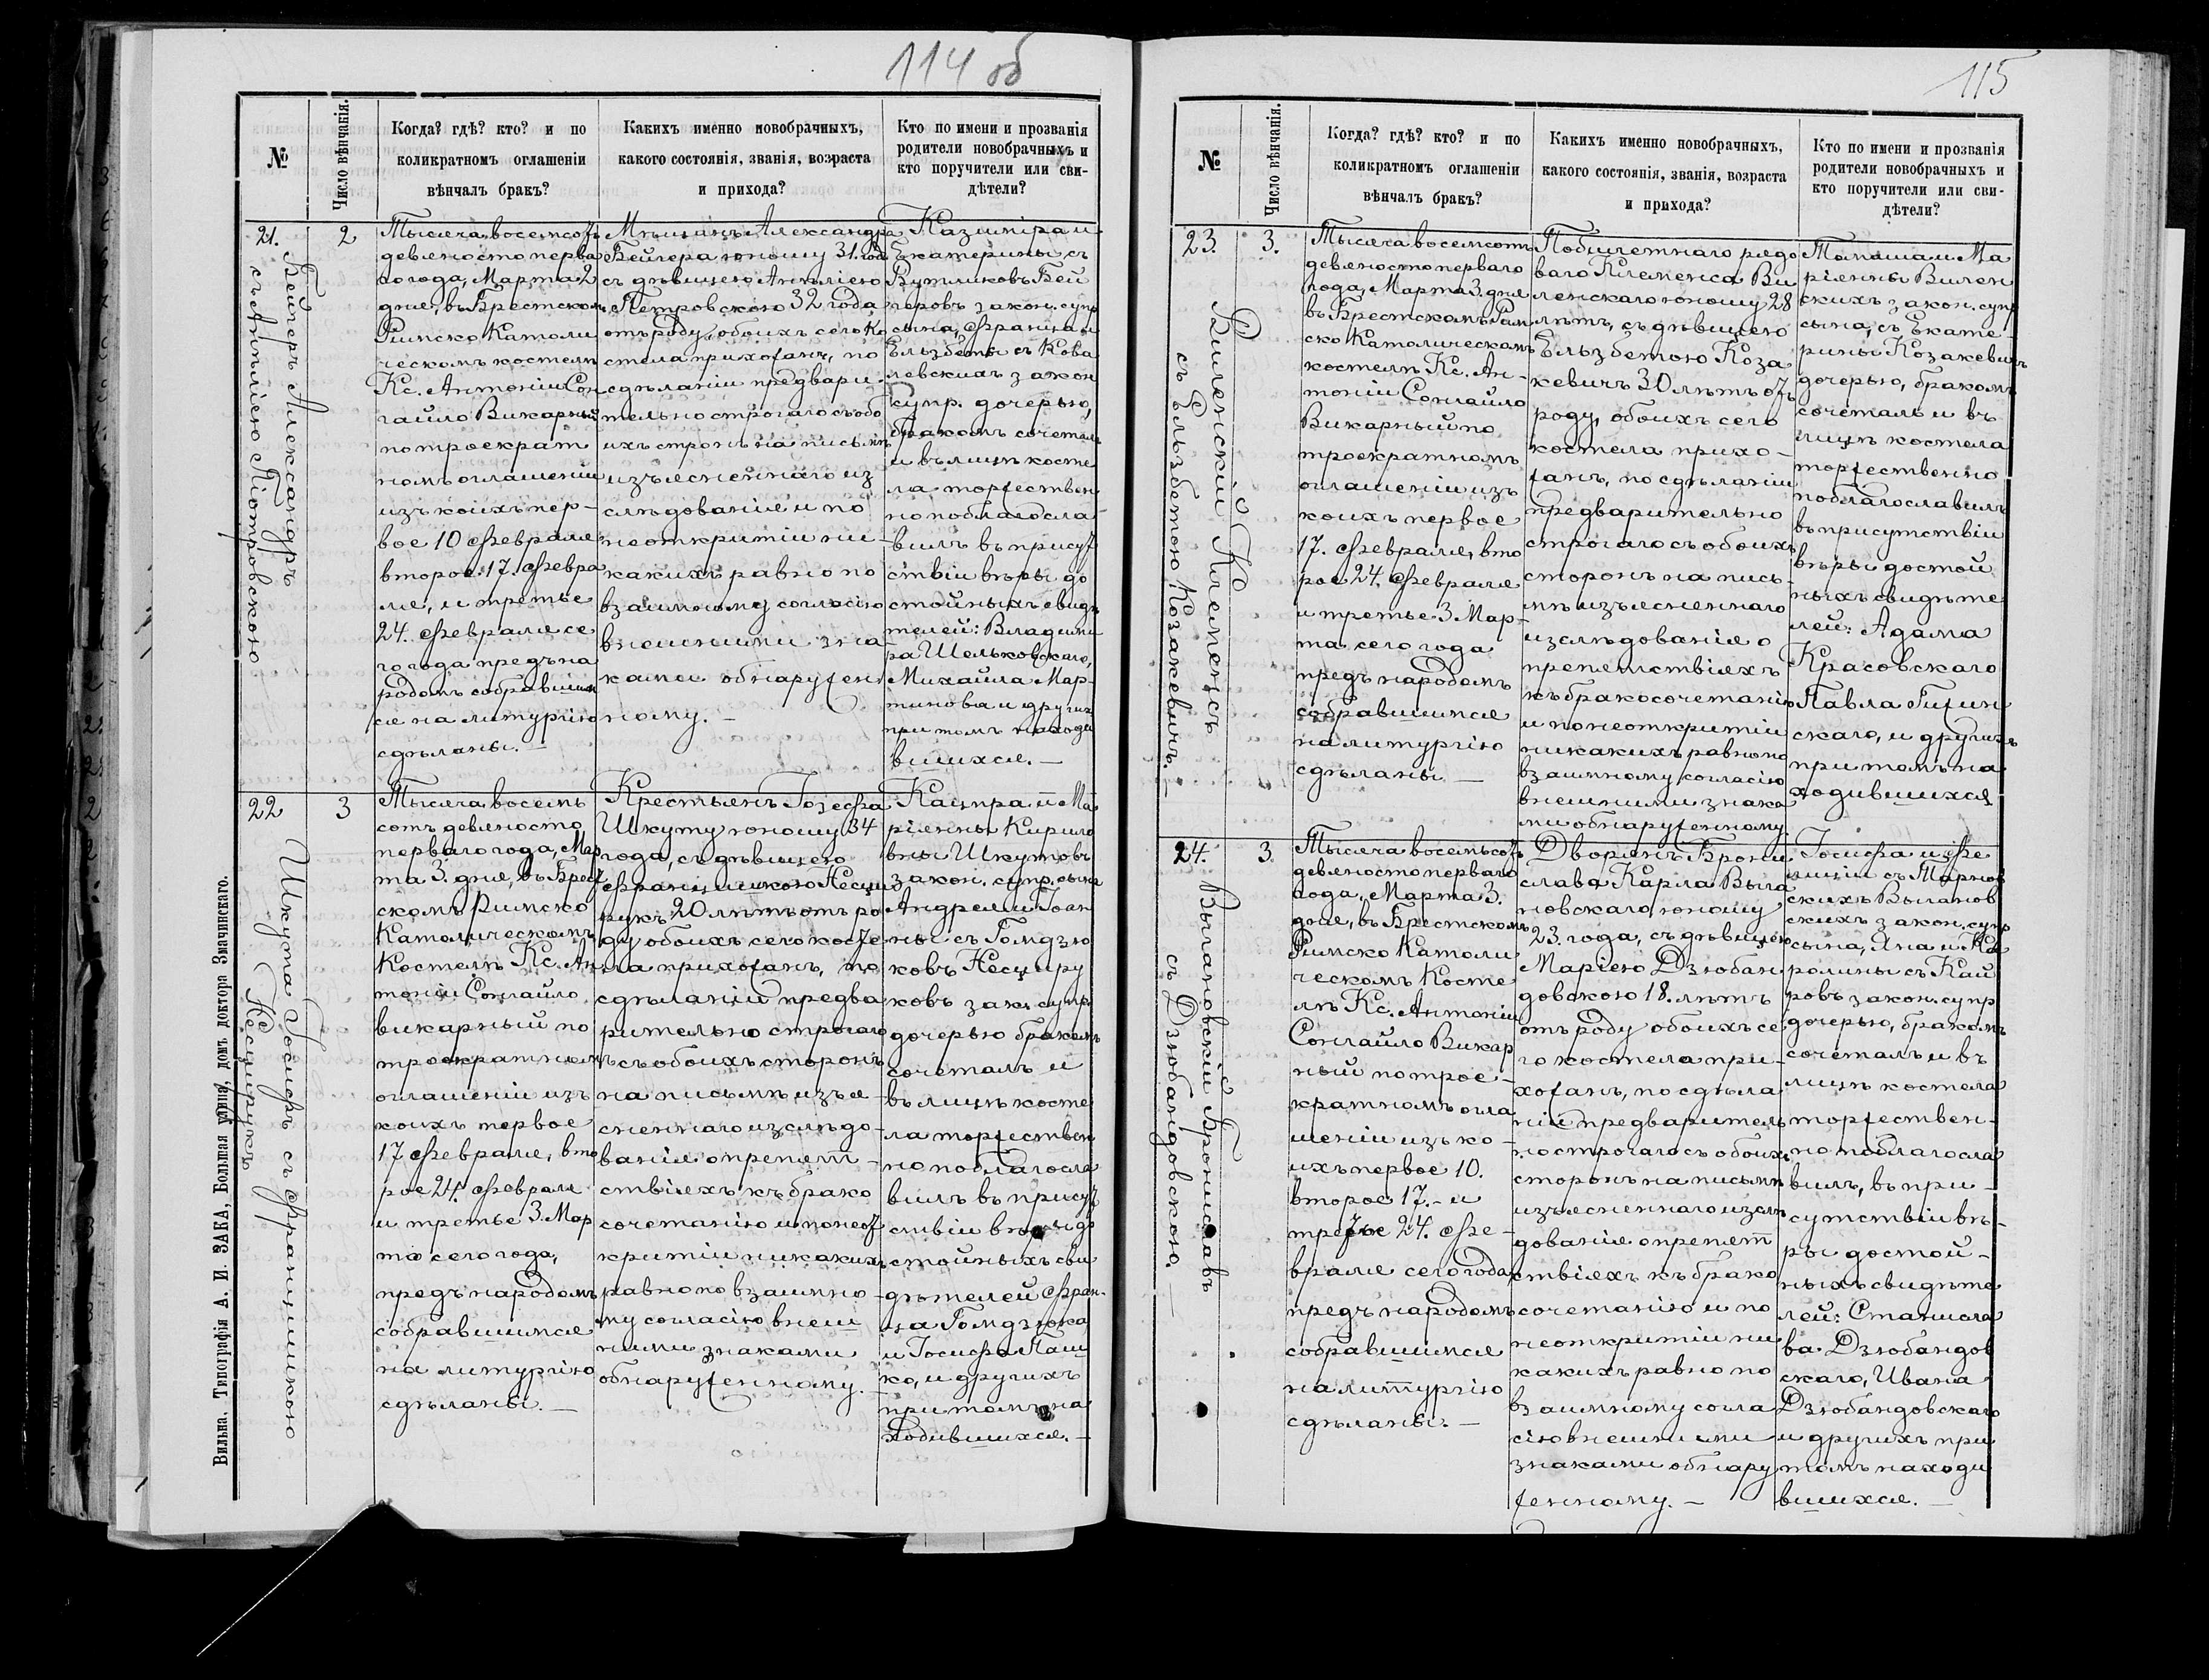 114 об
№
Число вѣнчанія.
Когда? гдѣ? кто? и по
коликратномъ оглашеніи
вѣнчалъ бракъ?
Какихъ именно новобрачныхъ,
какого состоянія, званія, возраста
и прихода?
Кто по имени и прозванія
родители новобрачныхъ и
кто поручители или сви-
дѣтели?
21.
Бейгеръ Александръ
съ Анѣліею Піотровскою
2
Тысяча восемсотъ
девяносто перва
го года, Марта 2
дня, въ Брестском
Римско Католи
ческомъ костелѣ
Кс. Антоніи Сон
гайло Викарный
по троекрат
номъ оглашеніи
изъ коихъ пер-
вое 10 Февраля
второе 17. Февра
ля, и третье
24. Февраля се
го года предъ на
родомъ собравшим
ся на литургію
сдѣланы. —
Мѣщанъ Александра
Бейгера юношу 31. год
съ дѣвицею Анѣліею
Петровскою 32 года
отъ роду, обоихъ сего Ко
стела прихожанъ, по
сдѣланіи предвари-
тельно строгаго съ обо
ихъ сторонъ на письмѣ
изъясненнаго из
слѣдованія и по
неоткритіи ни-
какихъ равно по
взаимному согласію
внешними зна
ками обнаружен
ному. —
Казиміра и
Екатерины съ
Бей
геровъ закон. супр
сына, Франца и
Ельзбеты съ Кова
левскихъ закон
супр. дочерью,
бракомъ сочеталъ
и въ лицѣ косте
ла торжествен
но поблагосла
вилъ въ присут
ствіи вѣры до
стойныхъ свидѣ
телей: Владими
ра Шельковскаго,
Михайла Мар-
тинова и другихъ
при томъ находи
вшихся. —
22
Шкута Іосифъ съ Франц��шкою
Несцирукъ
3
Тысяча восемь
сотъ девяносто
перваго года, Мар
та 3. дня, въ Брест
скомъ Римско
Католическомъ
Костелѣ Кс. Ан
тоніи Сонгайло
викарный по
троекратном
оглашеніи изъ
коихъ первое
17 Февраля, вто
рое 24. Февраля
и третье 3. Мар
та сего года,
предъ народомъ
собравшимся
на литургію
сдѣланы. —
Крестьянъ Іозефа
Шкуту юношу 34
года, съ дѣвицею
Францишкою Несци
рукъ 20 лѣтъ отъ ро
ду обоихъ сего косте
ла прихожанъ, по
сдѣланіи предва
рительно строгаго
съ обоихъ сторонъ
на письмѣ изъя-
сненнаго изслѣдо-
ванія о препят-
ствіяхъ къ брако
сочетанію и по неот
критіи никакихъ
равно по взаимно
му согласію внеш
ними знаками
обнаруженному. —
Кацпра и Ма
ріянны Кирило
вны Шкутовъ
закон. супр. сына
Андрея и Іоан
ны съ Гомдзю
ковъ Несциру
ковъ зак. супр.
дочерью бракомъ
сочеталъ и
въ лицѣ косте
ла торжествен
но поблагосла
вилъ въ присут
ствіи вѣры до
стойныхъ сви
дѣтелей Фран-
ца Гомдзюка,
и Іосифа Паш
ко, и другихъ
при томъ на
ходившихся. —
Вильна. Типографія А. И. ЗАКА, Большая улица, домъ доктора Значинскаго.
115
№
Число вѣнчанія.
Когда? гдѣ? кто? и по
коликратномъ оглашеніи
вѣнчалъ бракъ?
Какихъ именно новобрачныхъ,
какого состоянія, званія, возраста
и прихода?
Кто по имени и прозванія
родители новобрачныхъ и
кто поручители или сви-
дѣтели?
23.
Виленскій Клеменсъ
съ Ельзбетою Козакевичъ. —
3.
Тысяча восемсотъ
девяносто перваго
года, Марта 3. дня
въ Брестскомъ Рим
ско Католическомъ
костелѣ Кс. Ан-
тоніи Сонгайло
Викарный по
троекратномъ
оглашеніи изъ
коихъ первое
17. Февраля, вто
рое 24. Февраля
и третье 3 Мар-
та сего года
предъ народомъ
собравшимся
на литургію
сдѣланы —
Побилетнаго рядо
ваго Клеменса Ви
ленскаго юношу 28
лѣтъ, съ дѣвицею
Ельзбетою Коза
кевичъ 30 лѣтъ отъ
роду, обоихъ сего
костела прихо-
жанъ, по сдѣланіи
предварительно
строгаго съ обоихъ
сторонъ на пись-
мѣ изъясненнаго
изслѣдованія о
препятствіяхъ
къ бракосочетанію
и по неоткритіи
никакихъ равно по
взаимному согласію
внешними знака
ми обнаруженному.
Томаша и Ма
ріянны Вилен
скихъ закон. супр
сына, съ Екате-
рины Козакевичъ
дочерью, бракомъ
сочеталъ и въ
лицѣ костела
торжественно
поблагославилъ
въ присутствіи
вѣры достой
ныхъ свидѣте
лей: Адама
Красовскаго
Павла Гижин
скаго, и другихъ
при томъ на
ходившихся
24.
Выгановскій Брониславъ
съ Дзюбандовскою. —
3
Тысяча восемьсотъ
девяносто перваго
года, Марта 3.
дня, въ Брестскомъ
Римско Католи
ческомъ Косте
лѣ Кс. Антоніи
Сонгайло Викар
ный по трое-
кратномъ огла
шеніи изъ ко-
ихъ первое 10.
второе 17. и
третье 24. Фе-
враля сего года
предъ народомъ
собравшимся
на литургію
сдѣланы. —
Дворянъ Брони
слава Карла Выга
новскаго юношу
23. года, съ дѣвицею
Маріею Дзюбан
довскою 18. лѣтъ
отъ роду обоихъ се
го костела при-
хожанъ, по сдѣла
ніи предваритель
но строгаго съ обоихъ
сторонъ на письмѣ
изъясненнаго изслѣ
дованія о препят
ствіяхъ къ брако
сочетанію и по
неоткритіи ни
какихъ равно по
взаимному согла
сію внешними
знаками обнару
женному. —
Іосифа и Фе
лиціи съ Тарнов
скихъ Выганов
скихъ закон. супр
сына, Яна и Ка
ролины съ Кай
ровъ закон. супр
дочерью, бракомъ
сочеталъ и въ
лицѣ костела
торжествен-
но поблагосла
вилъ, въ при-
сутствіи вѣ-
ры достой-
ныхъ свидѣте
лей: Станисла
ва Дзюбандов
скаго, Ивана
Дзюбандовскаго
и другихъ при
томъ находи
вшихся. —